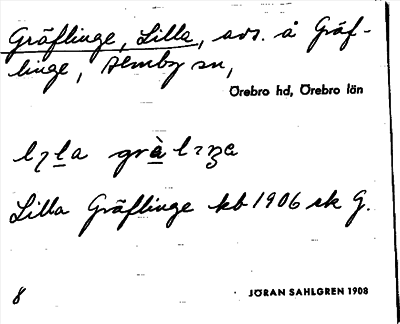 Gräflinge, Lilla, avs. å Gräf-
linge, Almby sn,
Örebro hd, Örebro län
Lilla Gräflinge kb 1906 sk G.
8 JÖRAN SAHLGREN 1908